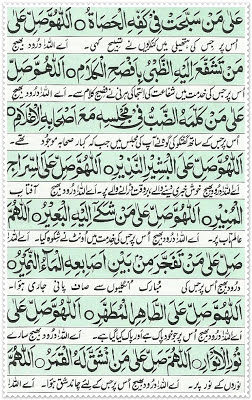 عَلٰى مَنْ سَبَّحَتْ فِيْ كَفِّهِ الْحَصَاةُ ○ اَللّٰهُمَّ صَلِّ عَلٰى
اُس پر جس کی ہتھیلی میں کنکریوں نے تسبیح کہی۔ اے اللہ! درُود بھیج
مَنْ تَشَفَّعَ اِلَيْهِ الظَّبْيُ بِاَفْصَحِ الْكَلَامِ ○ اَللّٰهُمَّ صَلِّ
اُس پر جس کی خدمت میں شفاعت کی التجا کی ہرنی نے فصیح کلام سے۔ اے اللہ! درود بھیج
عَلٰى مَنْ كَلَّمَهُ الضَّبُّ فِيْ مَجْلِسِهٖ مَعَ اَصْحَابِهِ الْاَعْلَامِ ○
اُس پر جس کے ساتھ گفتگو کی گوہ نے آپ کی مجلس میں جب کہ کبار صحابہ موجود تھے۔
اَللّٰهُمَّ صَلِّ عَلَى الْبَشِيْرِ النَّذِيْرِ ○ اَللّٰهُمَّ صَلِّ عَلَى السِّرَاجِ
اے اللہ! درود بھیج خوش خبری دینے والے، ڈرانے والے پر۔ اے اللہ! درود بھیج آفتاب
الْمُنِيْرِ ○ اَللّٰهُمَّ صَلِّ عَلٰى مَنْ شَكٰى اِلَيْهِ الْبَعِيْرُ ○ اَللّٰهُمَّ
عالم تاب پر۔ اے اللہ! درود بھیج اُس پر جس کی خدمت میں اونٹ نے شکوہ کیا۔ اے اللہ!
صَلِّ عَلٰى مَنْ تَفَجَّرَ مِنْ بَيْنِ اَصَابِعِهِ الْمَاءُ النَّمِيْرُ ○
درود بھیج اُس پر جس کی مبارک انگلیوں سے صاف پانی جاری ہوا۔
اَللّٰهُمَّ صَلِّ عَلَى الطَّاهِرِ الْمُطَهَّرِ ○ اَللّٰهُمَّ صَلِّ عَلٰى
اے اللہ! درود بھیج اُس پر جو خود پاک ہے اور پاک کیا گیا ہے۔ اے اللہ! درود بھیج سارے
نُوْرِ الْاَنْوَارِ ○ اَللّٰهُمَّ صَلِّ عَلٰى مَنِ انْشَقَّ لَهُ الْقَمَرُ ○ اَللّٰهُمَّ
نوروں کے نور پر۔ اے اللہ! درود بھیج اُس پر جس کے لئے چاند شق ہوا۔ اے اللہ!